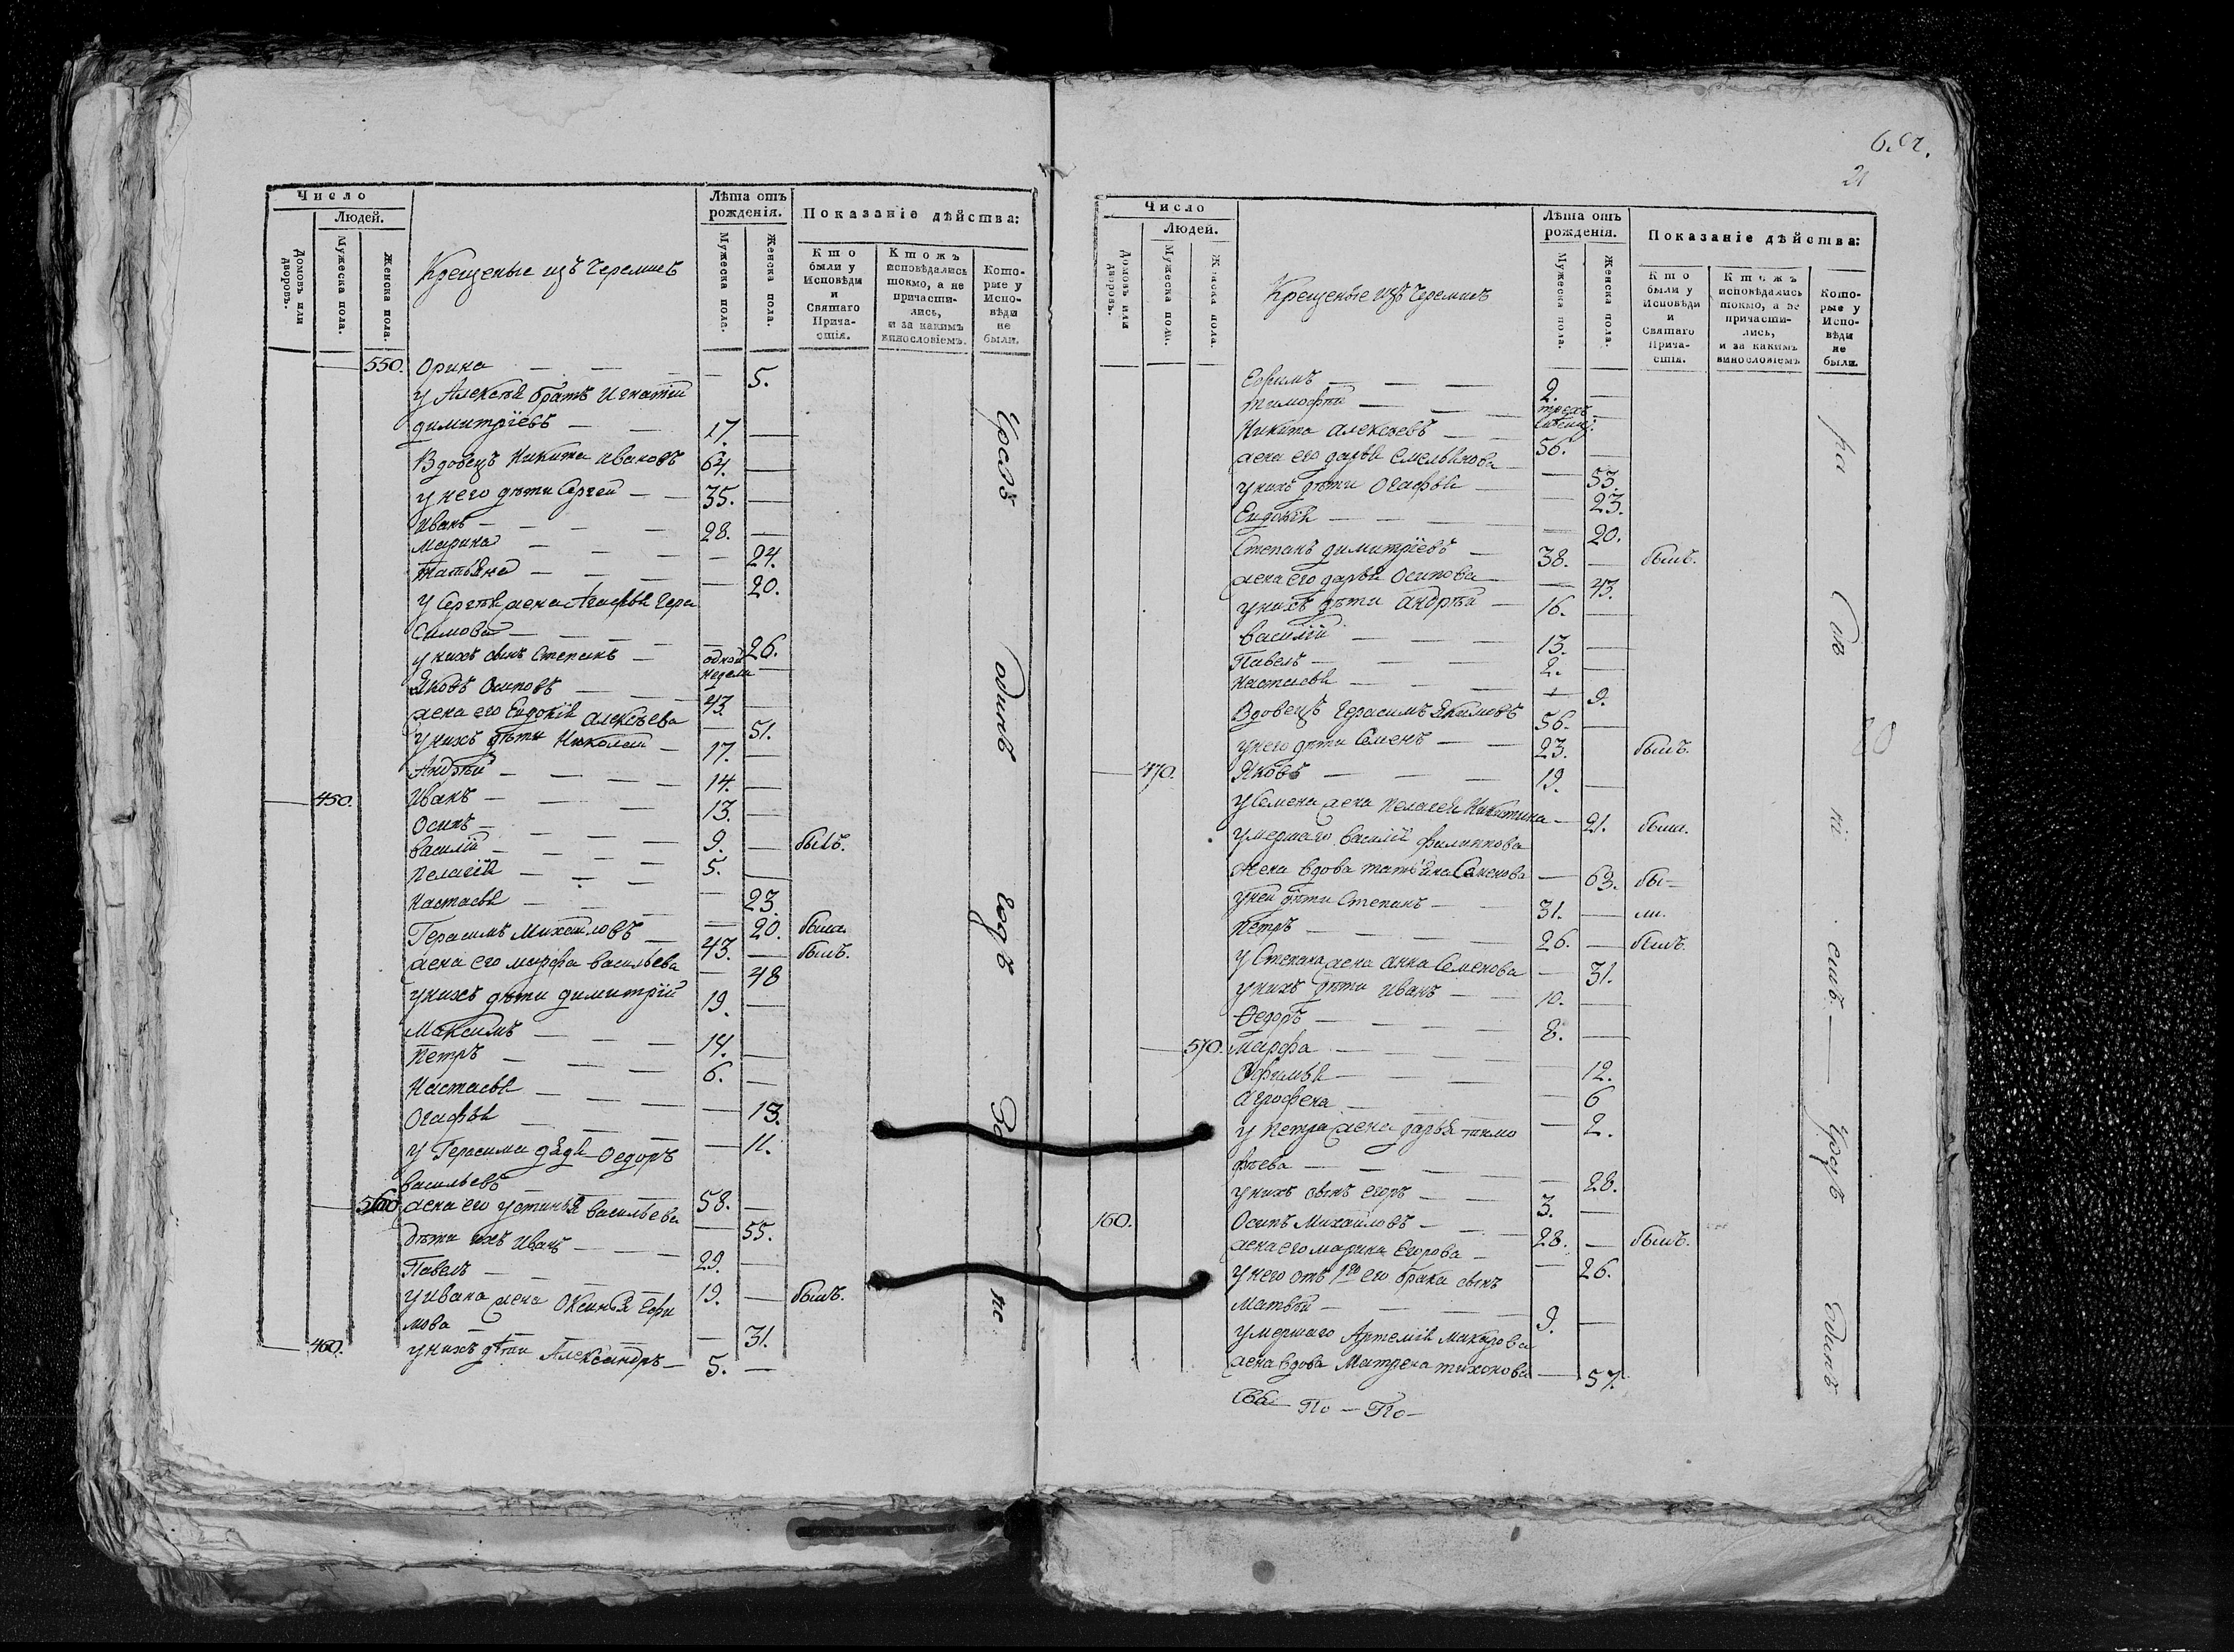 Число
Людей.
Домовъ или дворовъ.
Мужеска пола.
Женска пола.
Крещеные изъ Черемисъ
Лѣта отъ рожденія.
Мужеска пола.
Женска пола.
Показаніе дѣйства:
Кто были у Исповѣди и Святаго Причастія.
Ктожъ исповѣдались токмо, а не причастились, и за какимъ винословіемъ.
Которые у Исповѣди не были.
550. Орина — — — 5.
у Алексѣя братъ Игнатій
димитріевъ — — 17. —
Вдовецъ Никита ивановъ 64. —
у него дѣти Сергей — — 35. —
Иванъ — — — 28. —
Марина — — — — 24.
татьяна — — — — 20.
у Сергѣя жена Агафья Гера
симова — — — 26.
у нихъ сынъ Степанъ — одной недели —
Яковъ Осиповъ — — 43. —
жена его Евдокія алексѣева — 51.
у нихъ дѣти Николай — 17. —
Андрѣй — — — 14. —
450. Иванъ — — — 13. —
Осипъ — — — 9. — былъ.
василій — — — 5. —
пелагія — — — — 23.
настасья — — — — 20. была.
Герасимъ Михайловъ — 43. — былъ.
жена его марфа васильева — 48
у нихъ дѣти димитрій 19. —
Максимъ — — — 14. —
петръ — — — 6. —
Настасья — — — — 13.
Огафья — — — — 11.
у Герасима дядя Федоръ
васильевъ — — 58. —
560 жена его устинья васильева — 55.
дѣти ихъ Иванъ — — 29. —
Павелъ — — — 19. — былъ.
у ивана жена Оксинья Ефи
мова — — — 31.
460. у нихъ дѣти Александръ — 5. —
Чрезъ
одинъ
годъ
не
6. ст.
21
Число
Людей.
Домовъ или дворовъ.
Мужеска пола.
Женска пола.
Крещеные изъ Черемисъ
Лѣта отъ рожденія.
Мужеска пола.
Женска пола.
Показаніе дѣйства:
Кто были у Исповѣди и Святаго Причастія.
Ктожъ исповѣдались токмо, а не причастились, и за какимъ винословіемъ
Которые у Исповѣди не были.
Ефимъ — — — 2. —
тимофѣй — — — трехъ —
Никита алексѣевъ — — 56. —
жена его дарья Емельянова — 53.
у нихъ дѣти Огафья — — 23.
Евдокія — — — — 20.
Степанъ димитріевъ — 38. — былъ.
жена его дарья Осипова — 43.
у нихъ дѣти андрѣй — 16. —
василій — — — 13. —
Павелъ — — — 2. —
настасья — — — 9.
Вдовецъ Герасимъ Якимовъ 56. —
у него дѣти Семенъ — — 23. былъ.
470. Яковъ — — — 19. —
у Семена жена пелагея Никитина — 21. была.
умершаго василія филипова
жена вдова татьяна Семенова — 63. бы=
у ней дѣти Степанъ — — 31. — ли.
петръ — — — 26. — былъ.
у Степана жена анна Семенова — 31.
у нихъ дѣти иванъ — — 10. —
Федоръ — — — 8. —
570. марфа — — — — 12.
Офимья — — — — 6
агрофена — — — — 2.
у петра жена дарья тимо
фѣева — — — — 28.
у нихъ сынъ егоръ — — 3. —
160. Осипъ Михайловъ — 28. — былъ.
жена его марина Егорова — — 26.
у него отъ 1го его брака сынъ
матвѣй — — — 9. —
умершаго Артемія макарова
жена вдова Матрена тихонова — 57.
По — По —
ра
сть
Чрезъ
Одинъ